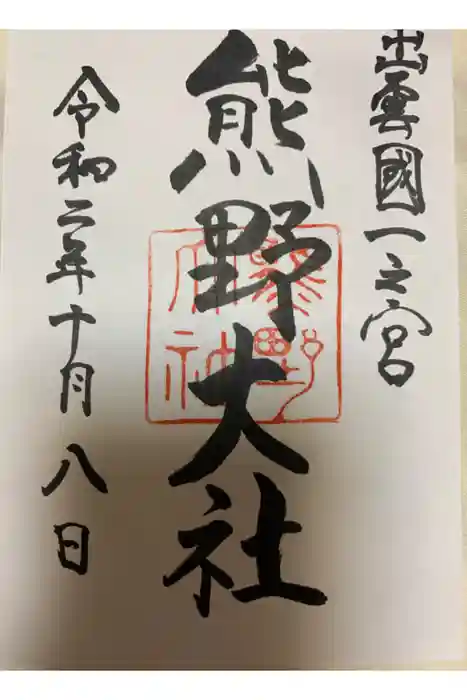 出雲國一之宮
熊野大社
令和二年十月八日